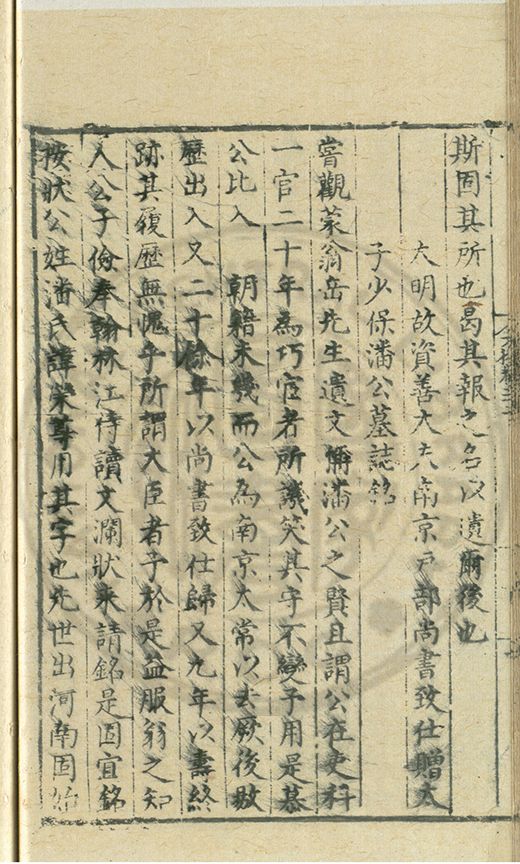 斯固其所也曷其報之名以遺爾後也
大明故資善大夫南京戶部尚書致仕贈太
子少保潘公墓誌銘
嘗觀蒙翁岳先生遺文備潘公之賢且謂公在吏科
一官二十年為巧宦者所譏笑其守不變予用是慕
公比入　朝籍未幾而公為南京太常以去厥後敭
歷出入又二十餘年以尚書致仕歸又九年以壽終
跡其履歷無愧乎所謂大臣者予於是益服翁之知
人公子儉奉翰林江侍讀文瀾狀來請銘是固宜銘
按狀公姓潘氏諱榮尊用其字也先世出河南固始